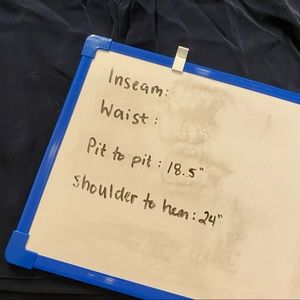 Inseam:
Waist :
Pit to pit : 18.5"
shoulder to hem : 24"